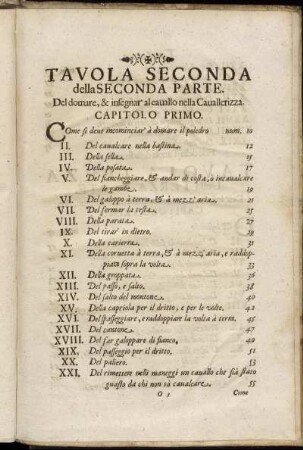 TAVOLA SECONDA
della SECONDA PARTE.
Del domare, & insegnar' al cauallo nella Cauallerizza.
CAPITOLO PRIMO.
Come si deue incominciar' à domare il poledro num. 10
II. Del caualcare nella bastina. 12
III. Della sella. 15
IV. Della posata. 17
V. Del fiancheggiare, & andar di costa, o incaualcare
le gambe. 19
VI. Del galoppo à terra, & à mezz' aria. 21
VII. Del fermar la testa. 25
VIII. Della parata. 27
IX. Del tirar' in dietro. 29
X. Della cariera. 31
XI. Della coruetta à terra, & à mezz' aria, e raddop-
piata sopra la volta. 33
XII. Della groppata. 36
XIII. Del passo, e salto. 38
XIV. Del salto del montone. 40
XV. Della capriola per il dritto, e per le volte. 42
XVI. Del spasseggiare, e raddoppiare la volta à terra. 45
XVII. Del cantone. 47
XVIII. Del far galoppare di fianco. 49
XIX. Del passeggio per il dritto. 51
XX. Del paliero. 53
XXI. Del rimettere nelli maneggi un cauallo che sia stato
guasto da chi non sà caualcare. 55
O 3 Come